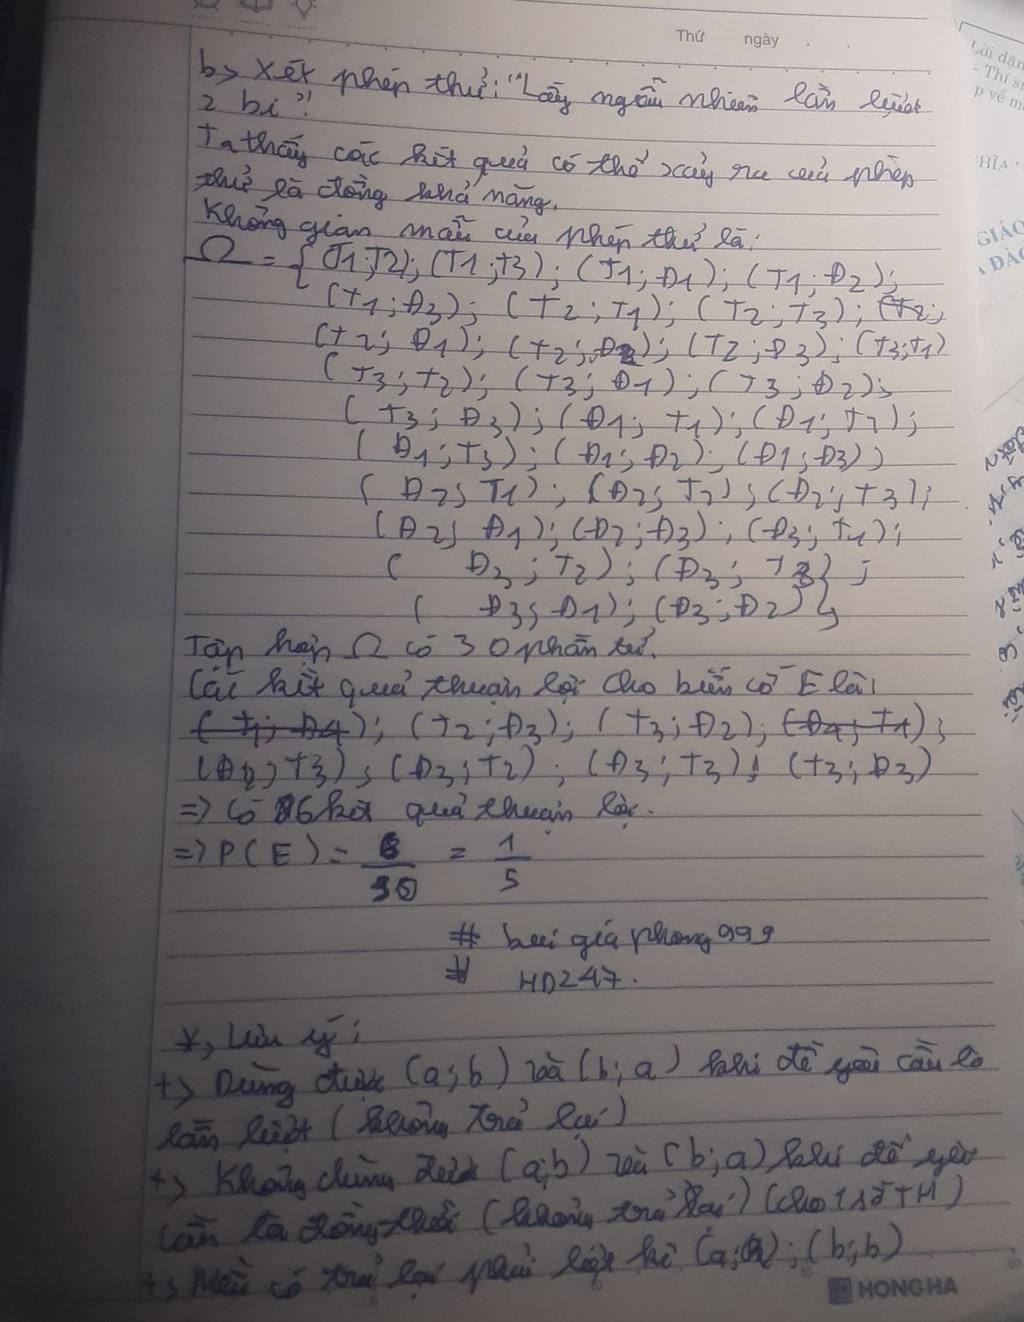 Thứ ngày . .
b> Xét phép thử: "Lấy ngẫu nhiên lần lượt
2 bi".
Ta thấy các kết quả có thể xảy ra của phép
thử là đồng khả năng.
Không gian mẫu của phép thử là:
Ω = { (T1;T2); (T1;T3); (T1;Đ1); (T1;Đ2);
(T1;Đ3); (T2;T1); (T2;T3); (T2;
(T2;Đ1); (T2;Đ2); (T2;Đ3); (T3;T1)
(T3;T2); (T3;Đ1); (T3;Đ2);
(T3;Đ3); (Đ1;T1); (Đ1;T2);
(Đ1;T3); (Đ1;Đ2); (Đ1;Đ3);
(Đ2;T1); (Đ2;T2); (Đ2;T3);
(Đ2;Đ1); (Đ2;Đ3); (Đ3;T1);
(Đ3;T2); (Đ3;T3) } ;
(Đ3;Đ1); (Đ3;Đ2) }
Tập hợp Ω có 30 phần tử.
Các kết quả thuận lợi cho biến cố E là:
(T1;Đ1); (T2;Đ3); (T3;Đ2); (Đ1;T1);
(Đ2;T3); (Đ3;T2); (Đ3;T3); (T3;Đ3)
=> Có 6 kết quả thuận lợi.
=> P(E) = 6/30 = 1/5
# bui gia phong 999
# HD247.
*, Lưu ý:
+> Dùng được (a;b) và (b;a) khi đề yêu cầu là
lần lượt (không trả lại)
+> Không dùng được (a;b) và (b;a) khi đề yêu
cầu là đồng thời (không trả lại) (cho 1 số TH)
+> Nếu có trả lại phải liệt kê (a;a); (b;b)
HONG HA
Lời dặn
- Thí s
HĨA
GIÁO
ĐÀO